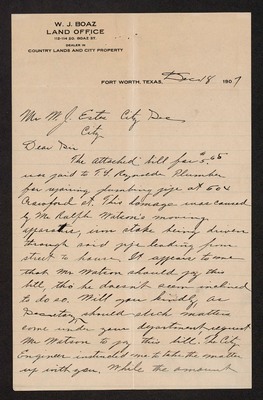 W. J. BOAZ
LAND OFFICE
112-114 SO. BOAZ ST.
DEALER IN
COUNTRY LANDS AND CITY PROPERTY
FORT WORTH, TEXAS, Dec 18 1907
Mr M. J. Estes City Sec
City.
Dear Sir
The attached bill for $5.65
was paid to T Y Reynolds Plumber
for repairing plumbing pipe at 604
Crawford St. This damage was caused
by Mr Ralph Watson's moving
apparatus, iron stake being driven
through said pipe leading from
street to house. It appears to me
that Mr Watson should pay this
bill, tho he doesn't seem inclined
to do so. Will you kindly, as
Secretary, should such matters
come under your department, request
Mr Watson to pay this bill. The City
Engineer instructed me to take the matter
up with you. While the amount